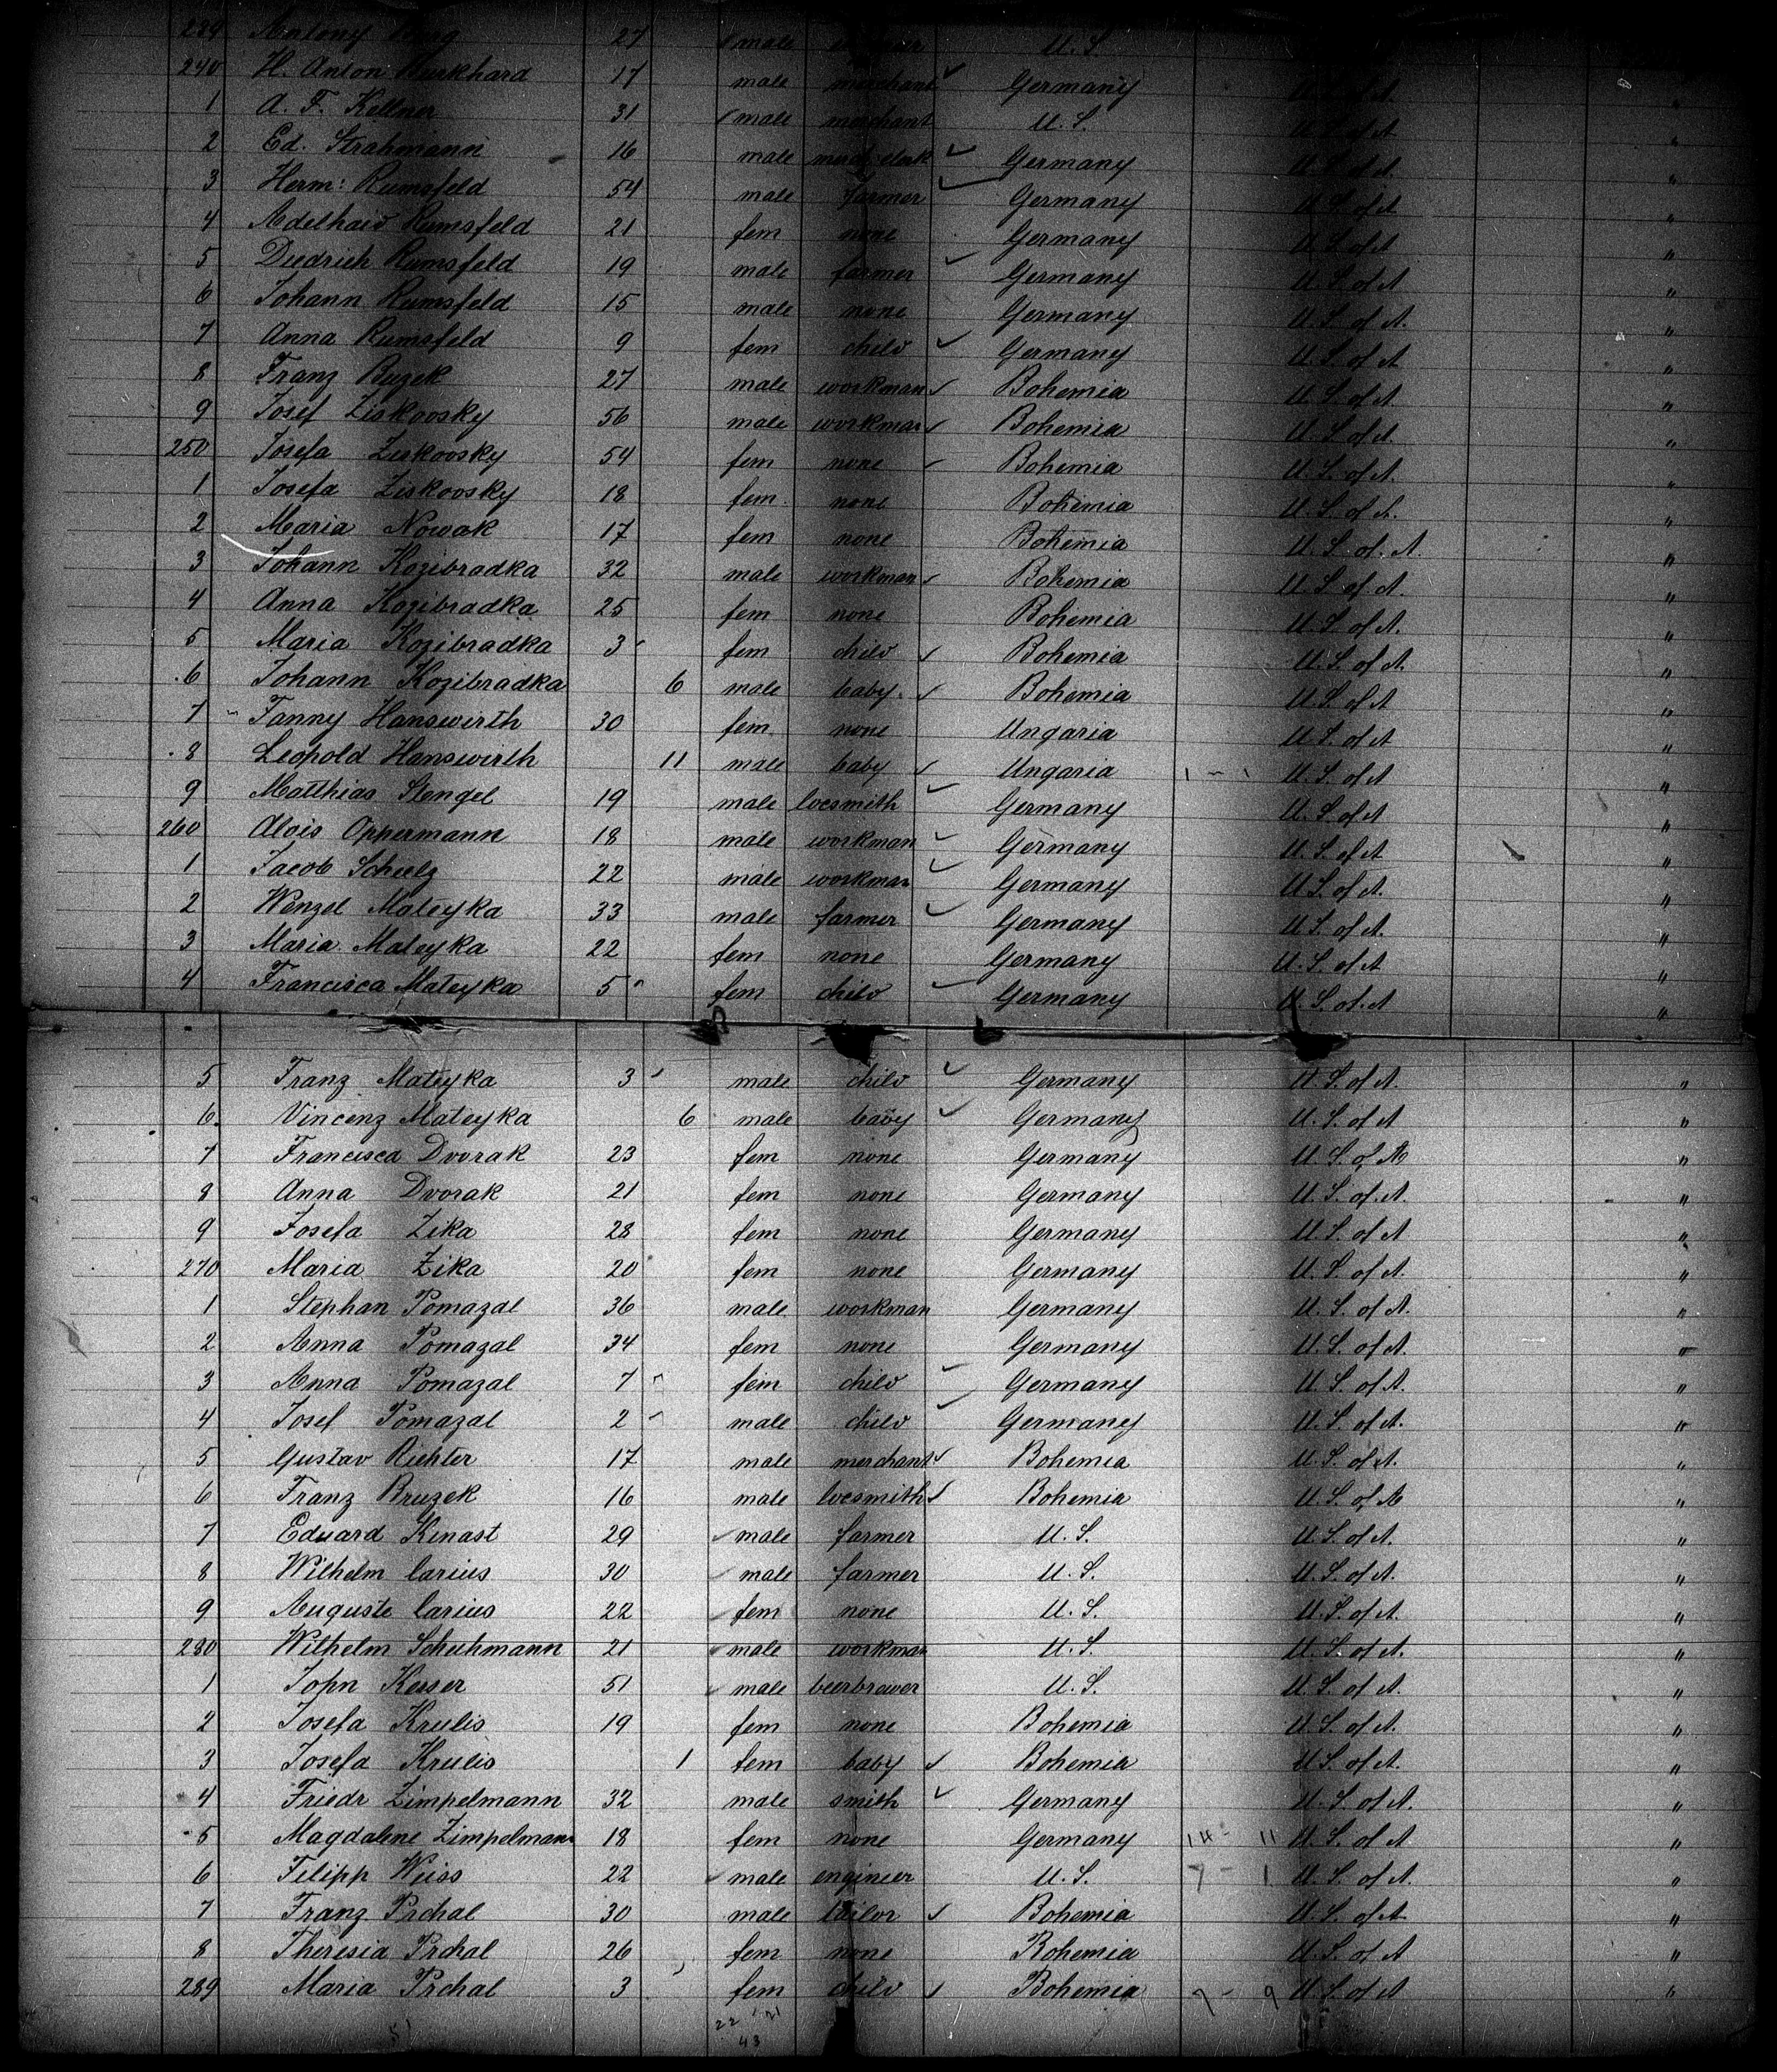 239 Antony 27 male U. S.
240 H. Anton Burkhard 17 male merchant Germany "
1 A. F. Kellner 31 male merchant U. S. U. S. of A "
2 Ed. Strahmann 16 male merch. clerk Germany U. S. of A. "
3 Herm: Rumsfeld 54 male farmer Germany U. S. of A "
4 Adelhaid Rumsfeld 21 fem none Germany U. S. of A "
5 Diedrich Rumsfeld 19 male farmer Germany U. S. of A "
6 Johann Rumsfeld 15 male none Germany U. S. of A. "
7 Anna Rumsfeld 9 fem child Germany U. S. of A "
8 Franz Buzek 27 male workman Bohemia U. S. of A "
9 Josef Ziskovsky 56 male workman Bohemia U. S. of A. "
250 Josefa Ziskovsky 54 fem none Bohemia U. S. of A. "
1 Josefa Ziskovsky 18 fem. none Bohemia U. S. of A. "
2 Maria Nowak 17 fem none Bohemia U. S. of. A. "
3 Johann Kozibradka 32 male workman Bohemia U. S. of A. "
4 Anna Kozibradka 25 fem none Bohemia U. S. of A. "
5 Maria Kozibradka 3 fem child Bohemia U. S. of A. "
6 Johann Kozibradka 6 male baby. Bohemia U. S. of A "
7 Fanny Hanswirth 30 fem. none Ungaria U. S. of A "
8 Leopold Hanswirth 11 male baby Ungaria 1 - 1 U. S. of A "
9 Matthias Stengel 19 male locsmith Germany U. S. of A "
260 Alois Oppermann 18 male workman Germany U. S. of A "
1 Jacob Scheelz 22 male workman Germany U. S. of A. "
2 Wenzel Mateyka 33 male farmer Germany U. S. of A. "
3 Maria Mateyka 22 fem none Germany U. S. of A "
4 Francisca Mateyka 5 fem child Germany U. S. of. A "
5 Franz Mateyka 3 male child Germany U. S. of A. "
6. Vincenz Mateyka 6 male baby Germany U. S. of A "
7 Francisca Dvorak 23 fem none Germany U. S. of A "
8 Anna Dvorak 21 fem none Germany U. S. of. A. "
9 Josefa Zika 28 fem none Germany U. S. of A "
270 Maria Zika 20 fem none Germany U. S. of A. "
1 Stephan Pomazal 36 male workman Germany U. S. of A. "
2 Anna Pomazal 34 fem none Germany U. S. of A. "
3 Anna Pomazal 7 fem child Germany U. S. of A. "
4 Josef Pomazal 2 male child Germany U. S. of A. "
5 Gustav Richter 17 male merchant Bohemia U. S. of A. "
6 Franz Bruzek 16 male locsmith Bohemia U. S. of A "
7 Eduard Kinast 29 male farmer U. S. U. S. of A. "
8 Wilhelm Carius 30 male farmer U. S. U. S. of A. "
9 Auguste Carius 22 fem none U. S. U. S. of A. "
280 Wilhelm Schuhmann 21 male workman U. S. U. S. of A. "
1 John Kaiser 51 male beerbrawer U. S. U. S. of A. "
2 Josefa Krulis 19 fem none Bohemia U. S. of A. "
3 Josefa Krulis 1 fem baby Bohemia U. S. of A. "
4 Friedr Zimpelmann 32 male smith Germany U. S. of A. "
5 Magdalene Zimpelmann 18 fem none Germany 14 - 11 U. S. of A "
6 Filipp Weiss 22 male engineer U. S. 7 - 1 U. S. of A. "
7 Franz Prchal 30 male tailor Bohemia U. S. of A "
8 Theresia Prchal 26 fem none Bohemia U. S. of A "
289 Maria Prchal 3 fem child Bohemia 7 - 9 U. S. of A "
51 22 21
43